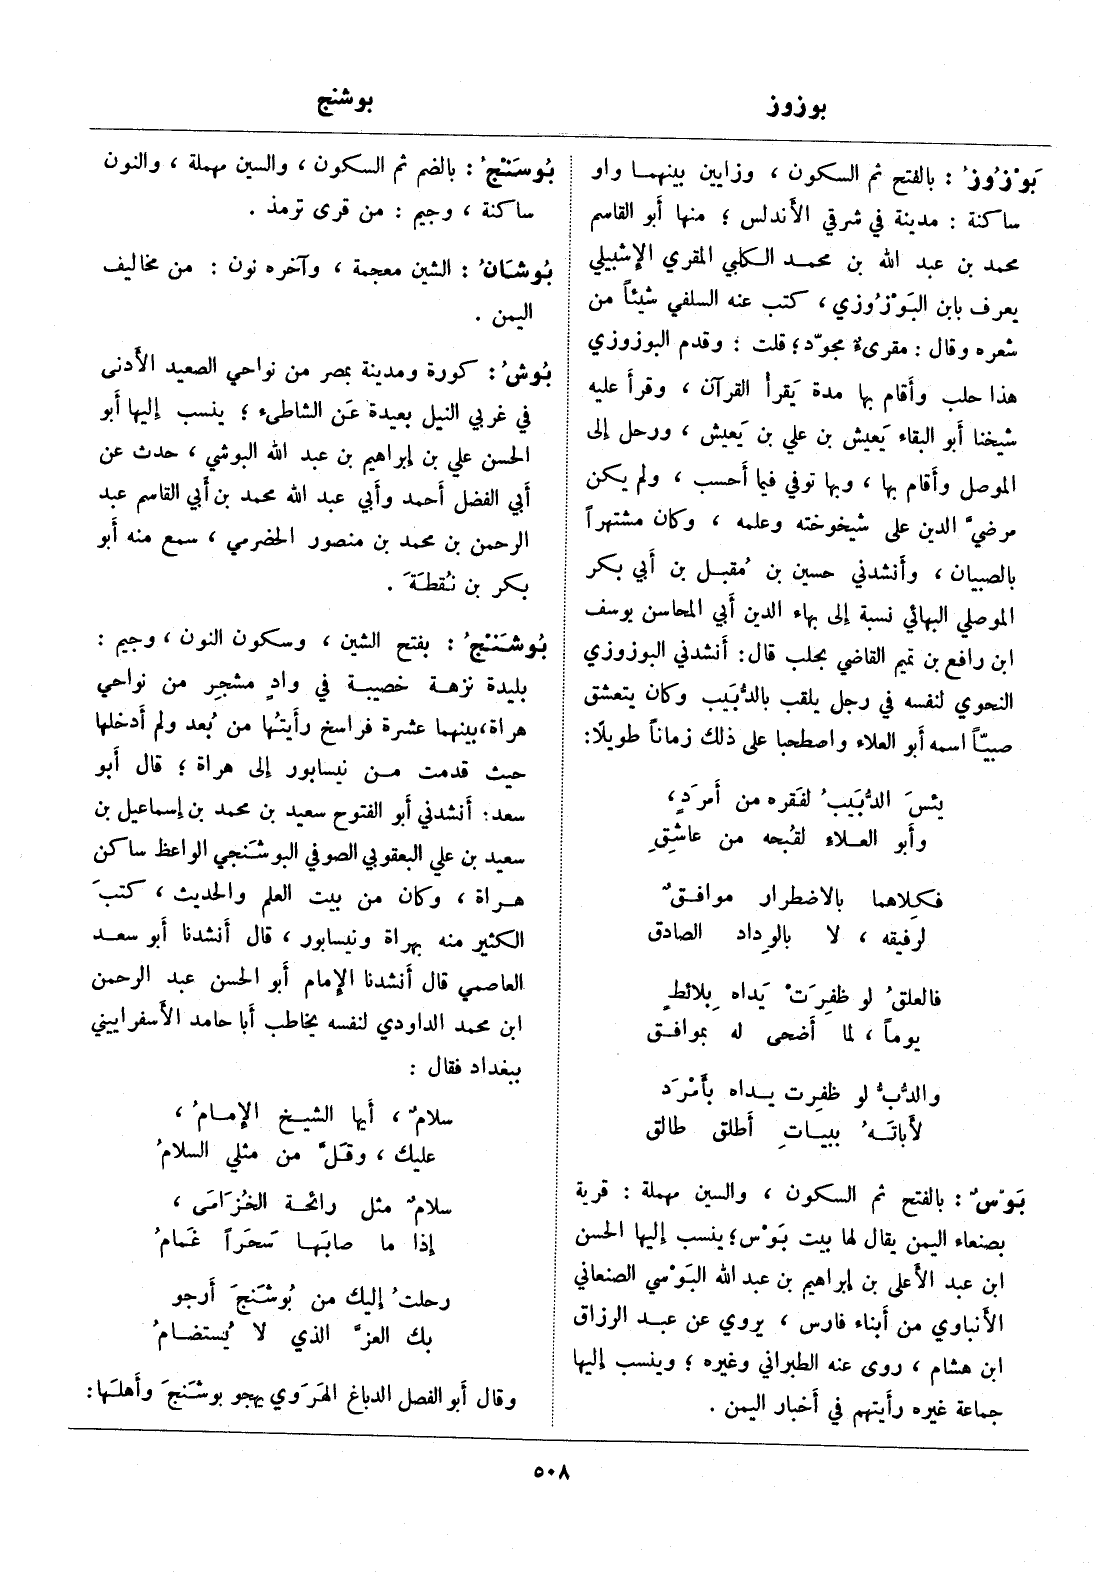 بوزوز
بوشنج
بَوْزُوزُ : بالفتح ثم السكون ، وزايين بينهما واو
ساكنة : مدينة في شرقي الأندلس ؛ منها أبو القاسم
محمد بن عبد الله بن محمد الكلبي المقري الإشبيلي
يعرف بابن البَوْزُوزي ، كتب عنه السلفي شيئاً من
شعره وقال : مقرىء مجوّد ؛ قلت : وقدم البوزوزي
هذا حلب وأقام بها مدة يَقرأُ القرآن ، وقرأ عليه
شيخنا أبو البقاء يَعيش بن علي بن يَعيش ، ورحل إلى
الموصل وأقام بها ، وبها توفي فيما أحسب ، ولم يكن
مرضيَّ الدين على شيخوخته وعلمه ، وكان مشتهراً
بالصبيان ، وأنشدني حسين بن مُقبل بن أبي بكر
الموصلي البهائي نسبة إلى بهاء الدين أبي المحاسن يوسف
ابن رافع بن تميم القاضي بحلب قال: أنشدني البوزوزي
النحوي لنفسه في رجل يلقب بالدُّبَيب وكان يتعشق
صبيّاً اسمه أبو العلاء واصطحبا على ذلك زماناً طويلًا:
يئسَ الدُّبَيبُ لفَقره من أمرَدٍ ،
وأبو العلاء لقُبحه من عاشِقِ
فكِلاهما بالاضطرار موافقٌ
لرفيقه ، لا بالوِداد الصادق
فالعلقُ لو ظفِرَتْ يَداه بِلائطٍ
يوماً ، لما أضحى له بموافق
والدُّبُّ لو ظفِرت يداه بأَمْرَد
لأَباتَهُ ببياتِ أطلق طالق
بَوْسٌ : بالفتح ثم السكون ، والسين مهملة : قرية
بصنعاء اليمن يقال لها بيت بَوْس ؛ ينسب إليها الحسن
ابن عبد الأعلى بن إبراهيم بن عبد الله البَوْسي الصنعاني
الأنباوي من أبناء فارس ، يروي عن عبد الرزاق
ابن هشام ، روى عنه الطبراني وغيره ؛ وينسب إليها
جماعة غيره رأيتهم في أخبار اليمن .
بُوسَنْجُ : بالضم ثم السكون ، والسين مهملة ، والنون
ساكنة ، وجيم : من قرى ترمذ .
بُوشَانُ : الشين معجمة ، وآخره نون : من مخاليف
اليمن .
بُوشُ : كورة ومدينة بمصر من نواحي الصعيد الأدنى
في غربي النيل بعيدة عن الشاطىء ؛ ينسب إليها أبو
الحسن علي بن إبراهيم بن عبد الله البوشي ، حدث عن
أبي الفضل أحمد وأبي عبد الله محمد بن أبي القاسم عبد
الرحمن بن محمد بن منصور الحضرمي ، سمع منه أبو
بكر بن نُقطَةَ .
بُوشَنْجُ : بفتح الشين ، وسكون النون ، وجيم :
بليدة نزهة خصيبة في وادٍ مشجِر من نواحي
هراة، بينهما عشرة فراسخ رأيتُها من بُعد ولم أدخلها
حيث قدمت من نيسابور إلى هراة ؛ قال أبو
سعد : أنشدني أبو الفتوح سعيد بن محمد بن إسماعيل بن
سعيد بن علي اليعقوبي الصوفي البوشَنجي الواعظ ساكن
هراة ، وكان من بيت العلم والحديث ، كتبَ
الكثير منه بهراة ونيسابور ، قال أنشدنا أبو سعد
العاصمي قال أنشدنا الإمام أبو الحسن عبد الرحمن
ابن محمد الداودي لنفسه يخاطب أبا حامد الأسفراييني
ببغداد فقال :
سلامٌ ، أيها الشيخ الإمامُ ،
عليك ، وقَلَّ من مثلي السلامُ
سلامٌ مثل رائحة الخُزَامَى ،
إذا ما صابَها سَحَراً غَمامُ
رحلتُ إليك من بُوشَنجَ أرجو
بك العزَّ الذي لا يُستضامُ
وقال أبو الفضل الدباغ الهَرَوي يهجو بوشَنجَ وأهلَها:
٥٠٨